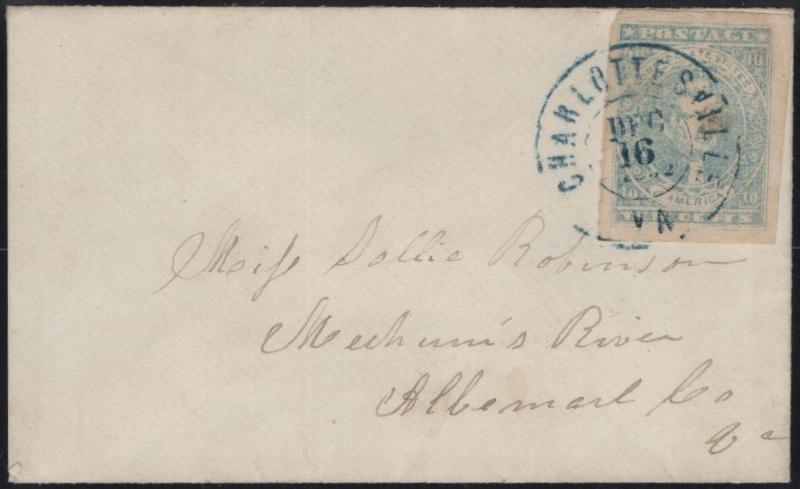 POSTAGE
CHARLOTTESVILLE
DEC
16
VA.
10 AMERICA 10
TEN CENTS
Miss Sallie Robinson
Mechum's River
Albemarl Co
Va